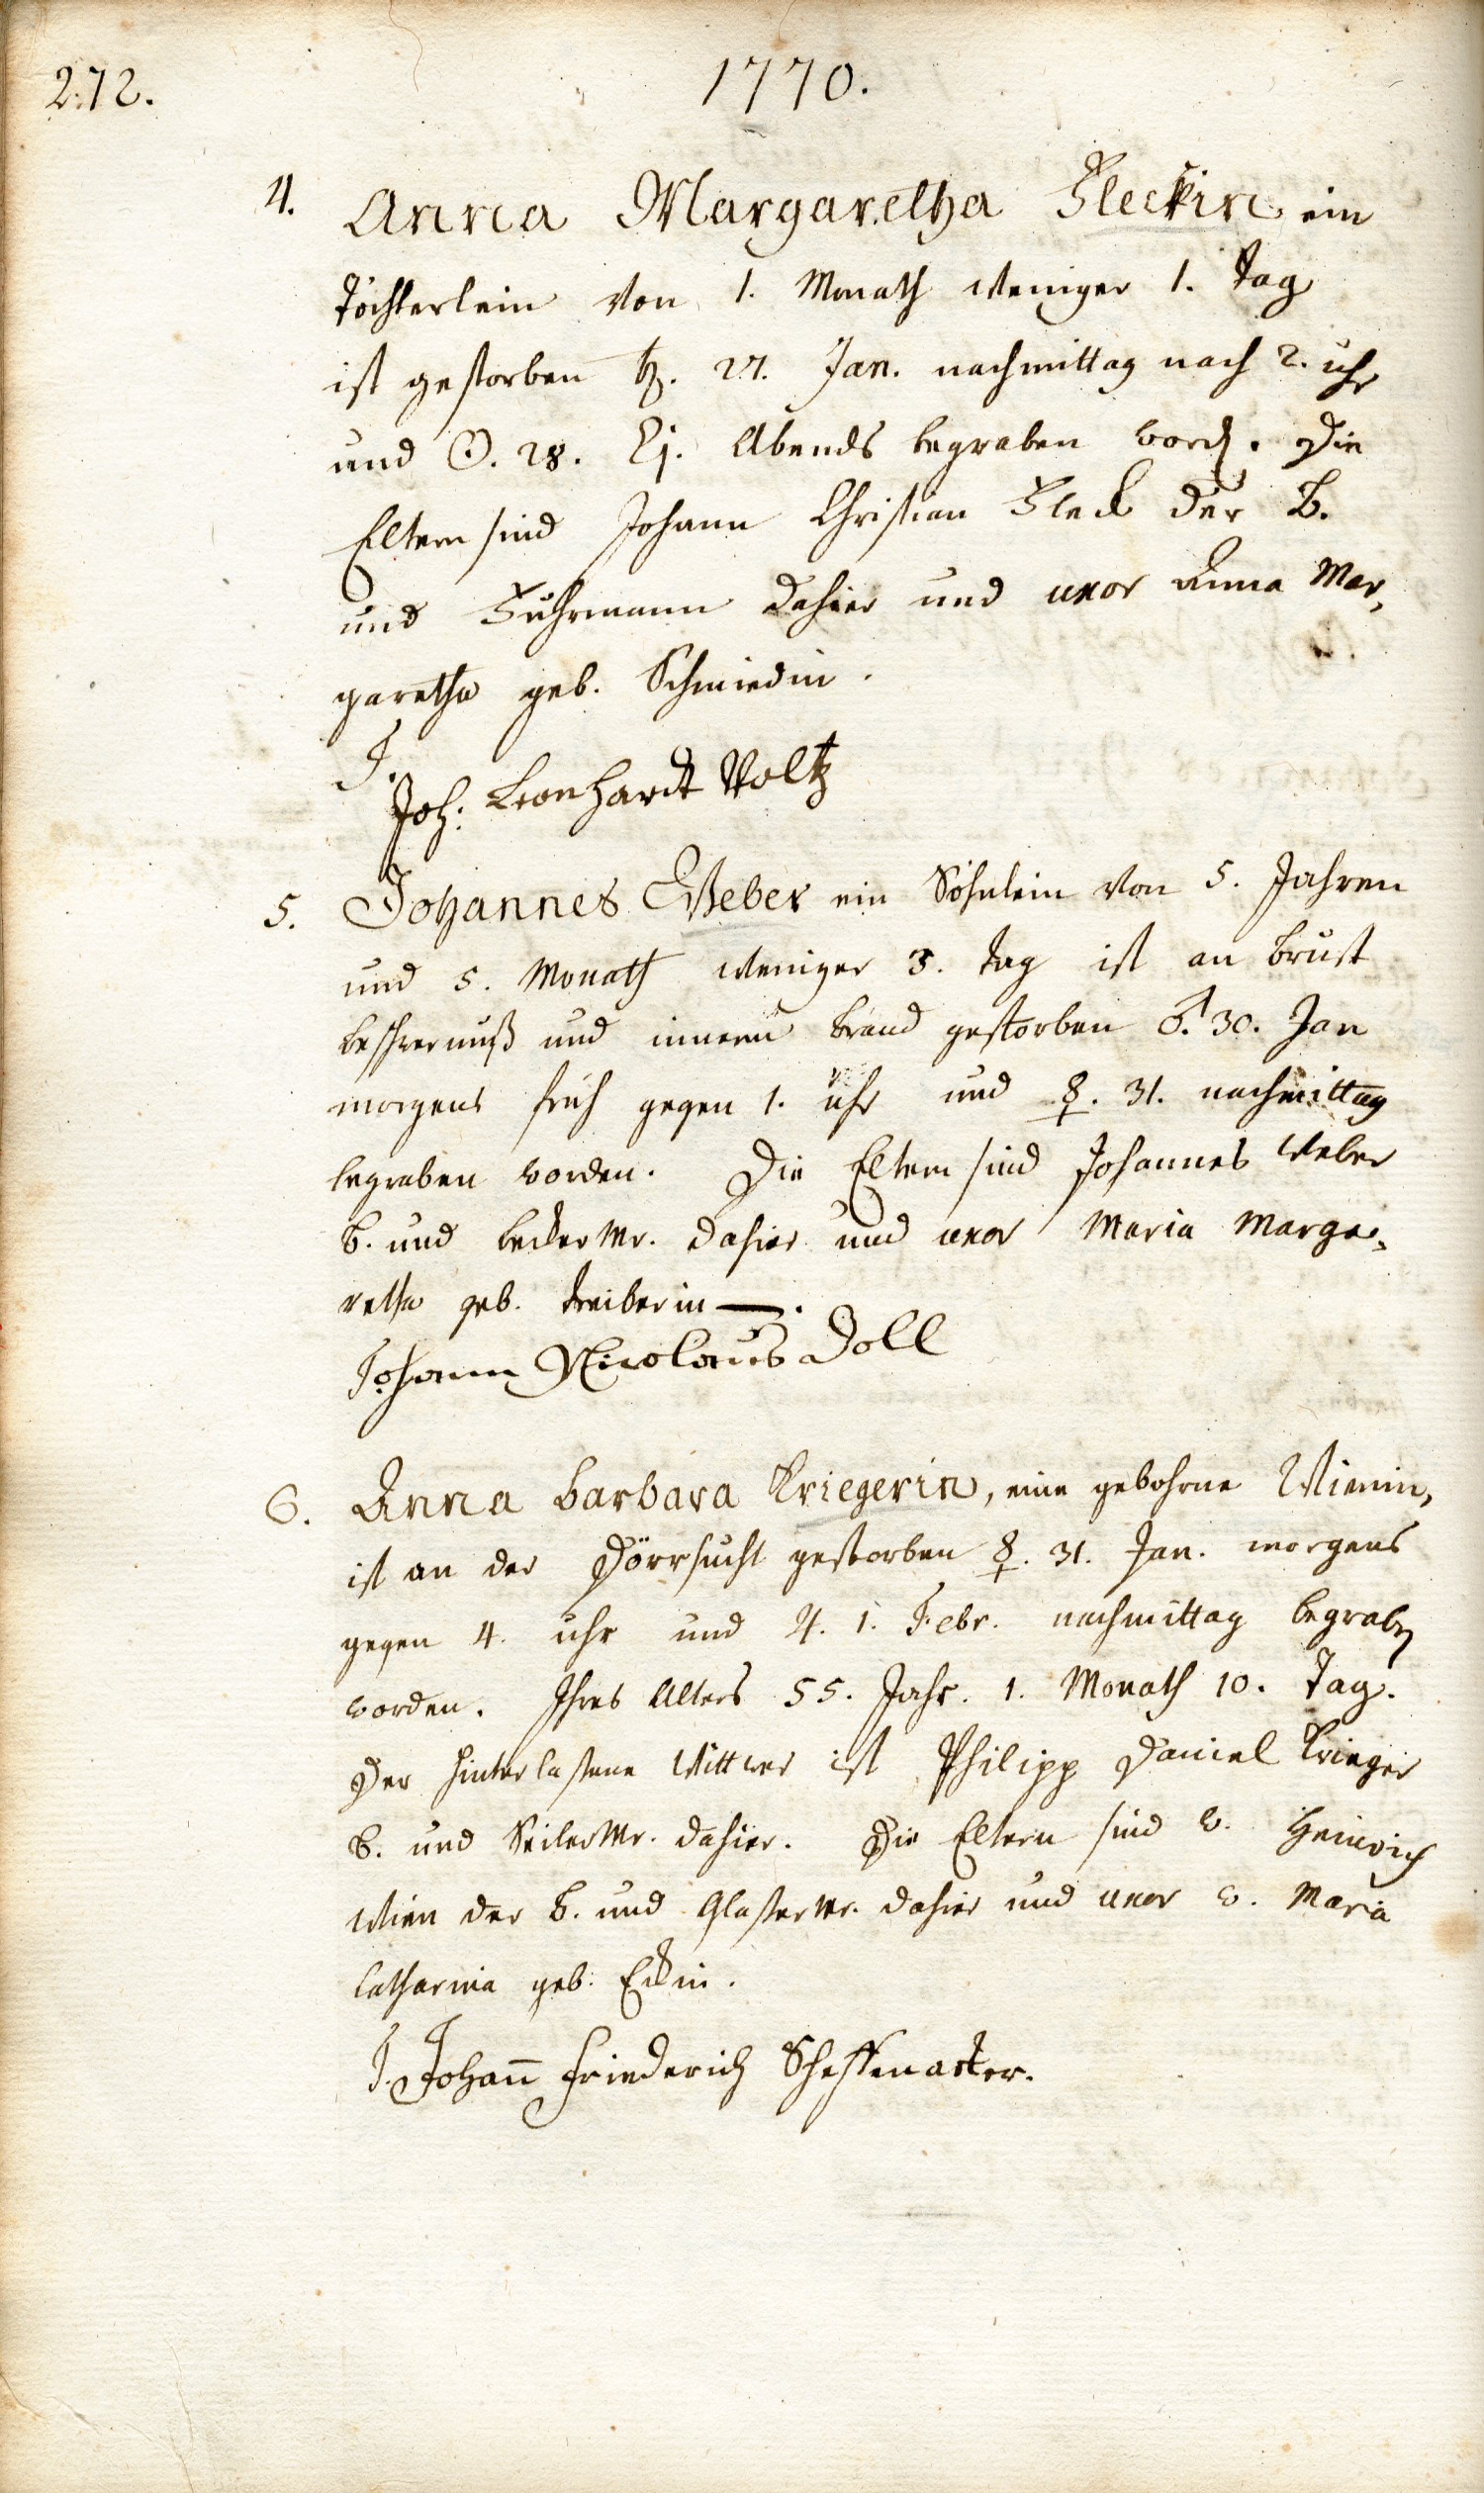 272.
1770.
4. Anna Margaretha Fleckin ein
Töchterlein von 1. Monath weniger 1. Tag
ist gestorben ♄. 27. Jan. nachmittag nach 2. uhr
und ☉. 28. Ej. Abends begraben word. Die
Eltern sind Johann Christian Fleck der B.
und Fuhrmann dahier und uxor Anna Mar,
garetha geb. Schmiedin.
T.
Joh: Leonhardt Voltz
5. Johannes Weber ein Söhnlein von 5. Jahren
und 5. Monath weniger 3. Tag ist an Brust
beschwernuß und innern Brand gestorben ♂. 30. Jan
morgens früh gegen 1. uhr und ☿. 31. nachmittag
begraben worden. Die Eltern sind Johannes Weber
B. und Becker Mr. dahier und uxor Maria Marga,
retha geb. Treiberin —.
Johann Nicolaus Doll
6. Anna Barbara Kriegerin, eine gebohrne Wienin,
ist an der Dörrsucht gestorben ☿. 31. Jan. morgens
gegen 4. uhr und ♃. 1. Febr. nachmittag begraben
worden. Ihres Alters 55. Jahr. 1. Monath 10. Tag.
Der hinterlassene Wittwer ist Philipp Daniel Krieger
B. und Seiler Mr. dahier. Die Eltern sind w. Heinrich
Wien der B. und Glaser Mr. dahier und uxor w. Maria
Catharina geb. Eckin.
T. Johan̅ Friederich Scheffenacker.